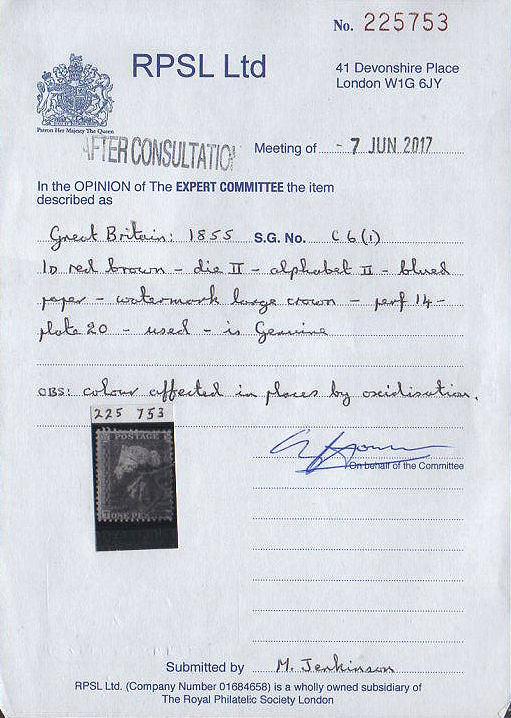 No. 225753
RPSL Ltd
41 Devonshire Place
London W1G 6JY
Patron Her Majesty The Queen
AFTER CONSULTATION
Meeting of - 7 JUN 2017
In the OPINION of The EXPERT COMMITTEE the item
described as
Great Britain: 1855 S.G. No. C6(1)
1D red brown - die II - alphabet II - blued
paper - watermark large crown - perf 14 -
plate 20 - used - is Genuine
OBS: colour affected in places by oxidisation.
225 753
POSTAGE
ONE PEN
On behalf of the Committee
Submitted by M. Jenkinson
RPSL Ltd. (Company Number 01684658) is a wholly owned subsidiary of
The Royal Philatelic Society London